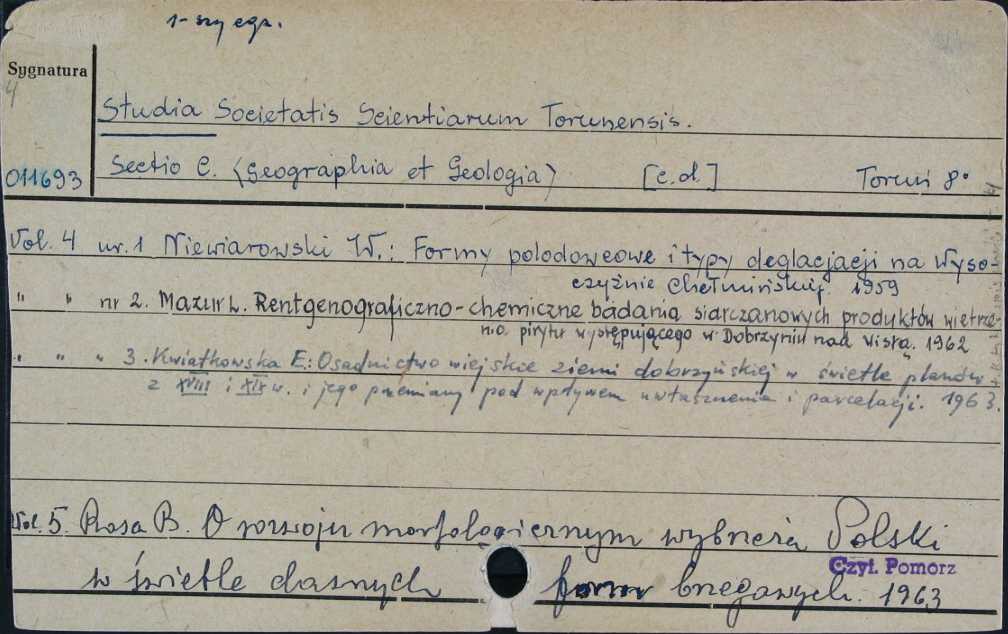 1-szy egz.
Sygnatura
4
Studia Societatis Scientiarum Torunensis.
011693 Sectio C. (Geographia et Geologia) [c.d.] Toruń 8°
Vol. 4 nr. 1 Niewiarowski W.: Formy polodowcowe i typy deglacjacji na Wyso-
czyźnie Chełmińskiej. 1959
" " nr 2. Mazur L. Rentgenograficzno-chemiczne badania siarczanowych produktów wietrze-
nia pirytu występującego w Dobrzyniu nad Wisłą. 1962
" " " 3. Kwiatkowska E.: Osadnictwo wiejskie ziemi dobrzyńskiej w świetle planów
z XVIII i XIX w. i jego przemiany pod wpływem uwłaszczenia i parcelacji. 1963.
Vol. 5. Rosa B. O rozwoju morfologicznym wybrzeża Polski
w świetle dawnych form brzegowych. 1963
Czyt. Pomorz